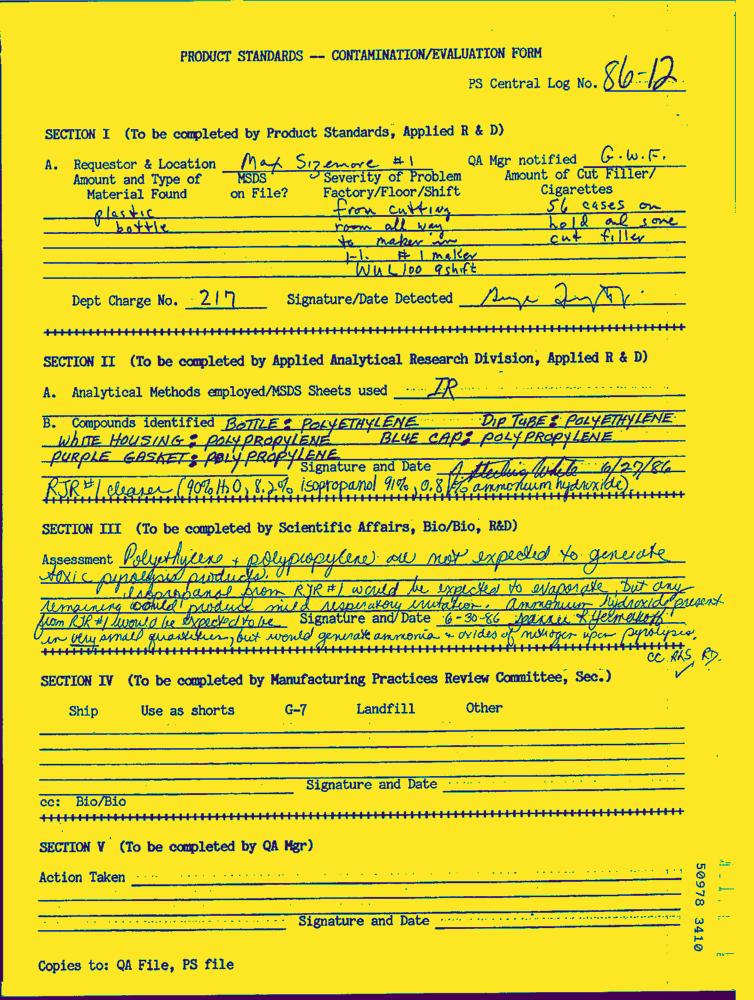 PRODUCT STANDARDS -- CONTAMINATION/EVALUATION FORM
PS Central Log No. 86-12
SECTION I (To be completed by Product Standards, Applied R & D)
A. Requestor & Location Max Sizemore #1 QA Mgr notified G.W.F.
Amount and Type of MSDS Severity of Problem Amount of Cut Filler/
Material Found on File? Factory/Floor/Shift Cigarettes
plastic from cutting 56 cases on
bottle room all way hold and some
to maker in cut filler
1-1. #1 maker
WUL100 shift
Dept Charge No. 217 Signature/Date Detected
SECTION II (To be completed by Applied Analytical Research Division, Applied R & D)
A. Analytical Methods employed/MSDS Sheets used IR
B. Compounds identified BOTTLE: POLYETHYLENE DIP TUBE: POLYETHYLENE
WHITE HOUSING: POLYPROPYLENE BLUE CAP: POLYPROPYLENE
PURPLE GASKET: POLYPROPYLENE
Signature and Date White 6/27/86
RJR #1 cleaner (90% H2O, 8.2% isopropanol 91%, 0.8% ammonium hydroxide)
SECTION III (To be completed by Scientific Affairs, Bio/Bio, R&D)
Assessment Polyethylene + polypropylene are not expected to generate
toxic pyrolysis products.
Isopropanol from RJR #1 would be expected to evaporate, but any
remaining would produce mild respiratory irritation. Ammonium hydroxide present
from RJR #1 would be expected to be Signature and Date 6-30-86
in very small quantities, but would generate ammonia + oxides of nitrogen upon pyrolysis.
cc: RD.
SECTION IV (To be completed by Manufacturing Practices Review Committee, Sec.)
Ship Use as shorts G-7 Landfill Other
Signature and Date
cc: Bio/Bio
SECTION V (To be completed by QA Mgr)
Action Taken
Signature and Date
Copies to: QA File, PS file
50978 3410